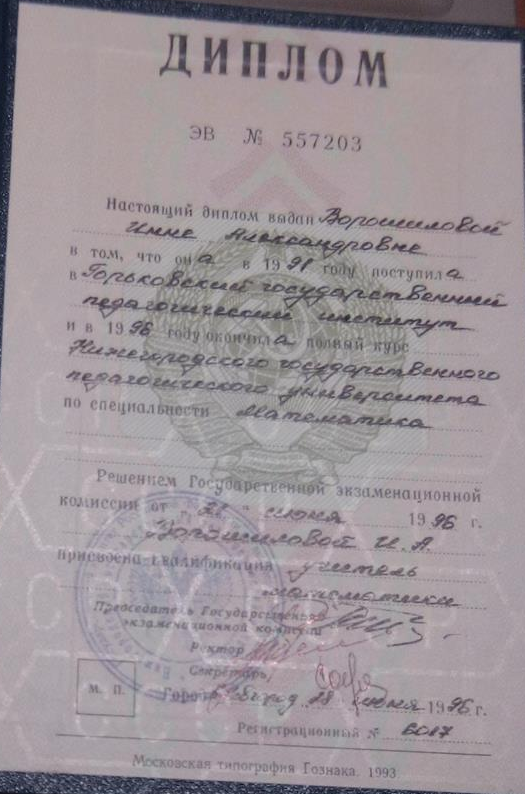 ДИПЛОМ
ЭВ № 557203
Настоящий диплом выдан Ворошиловой
Инне Александровне
в том, что она в 1991 году поступила
в Горьковский государственный
педагогический институт
и в 1996 году окончила полный курс
Нижегородского государственного
педагогического университета
по специальности Математика
Решением Государственной экзаменационной
комиссии от "21" июня 1996 г.
Ворошиловой И.А.
присвоена квалификация учитель
математики
Председатель Государственной
экзаменационной комиссии
Ректор
Секретарь
М. П.
Город 28 июня 1996 г.
Регистрационный № 6017
Московская типография Гознака. 1993.